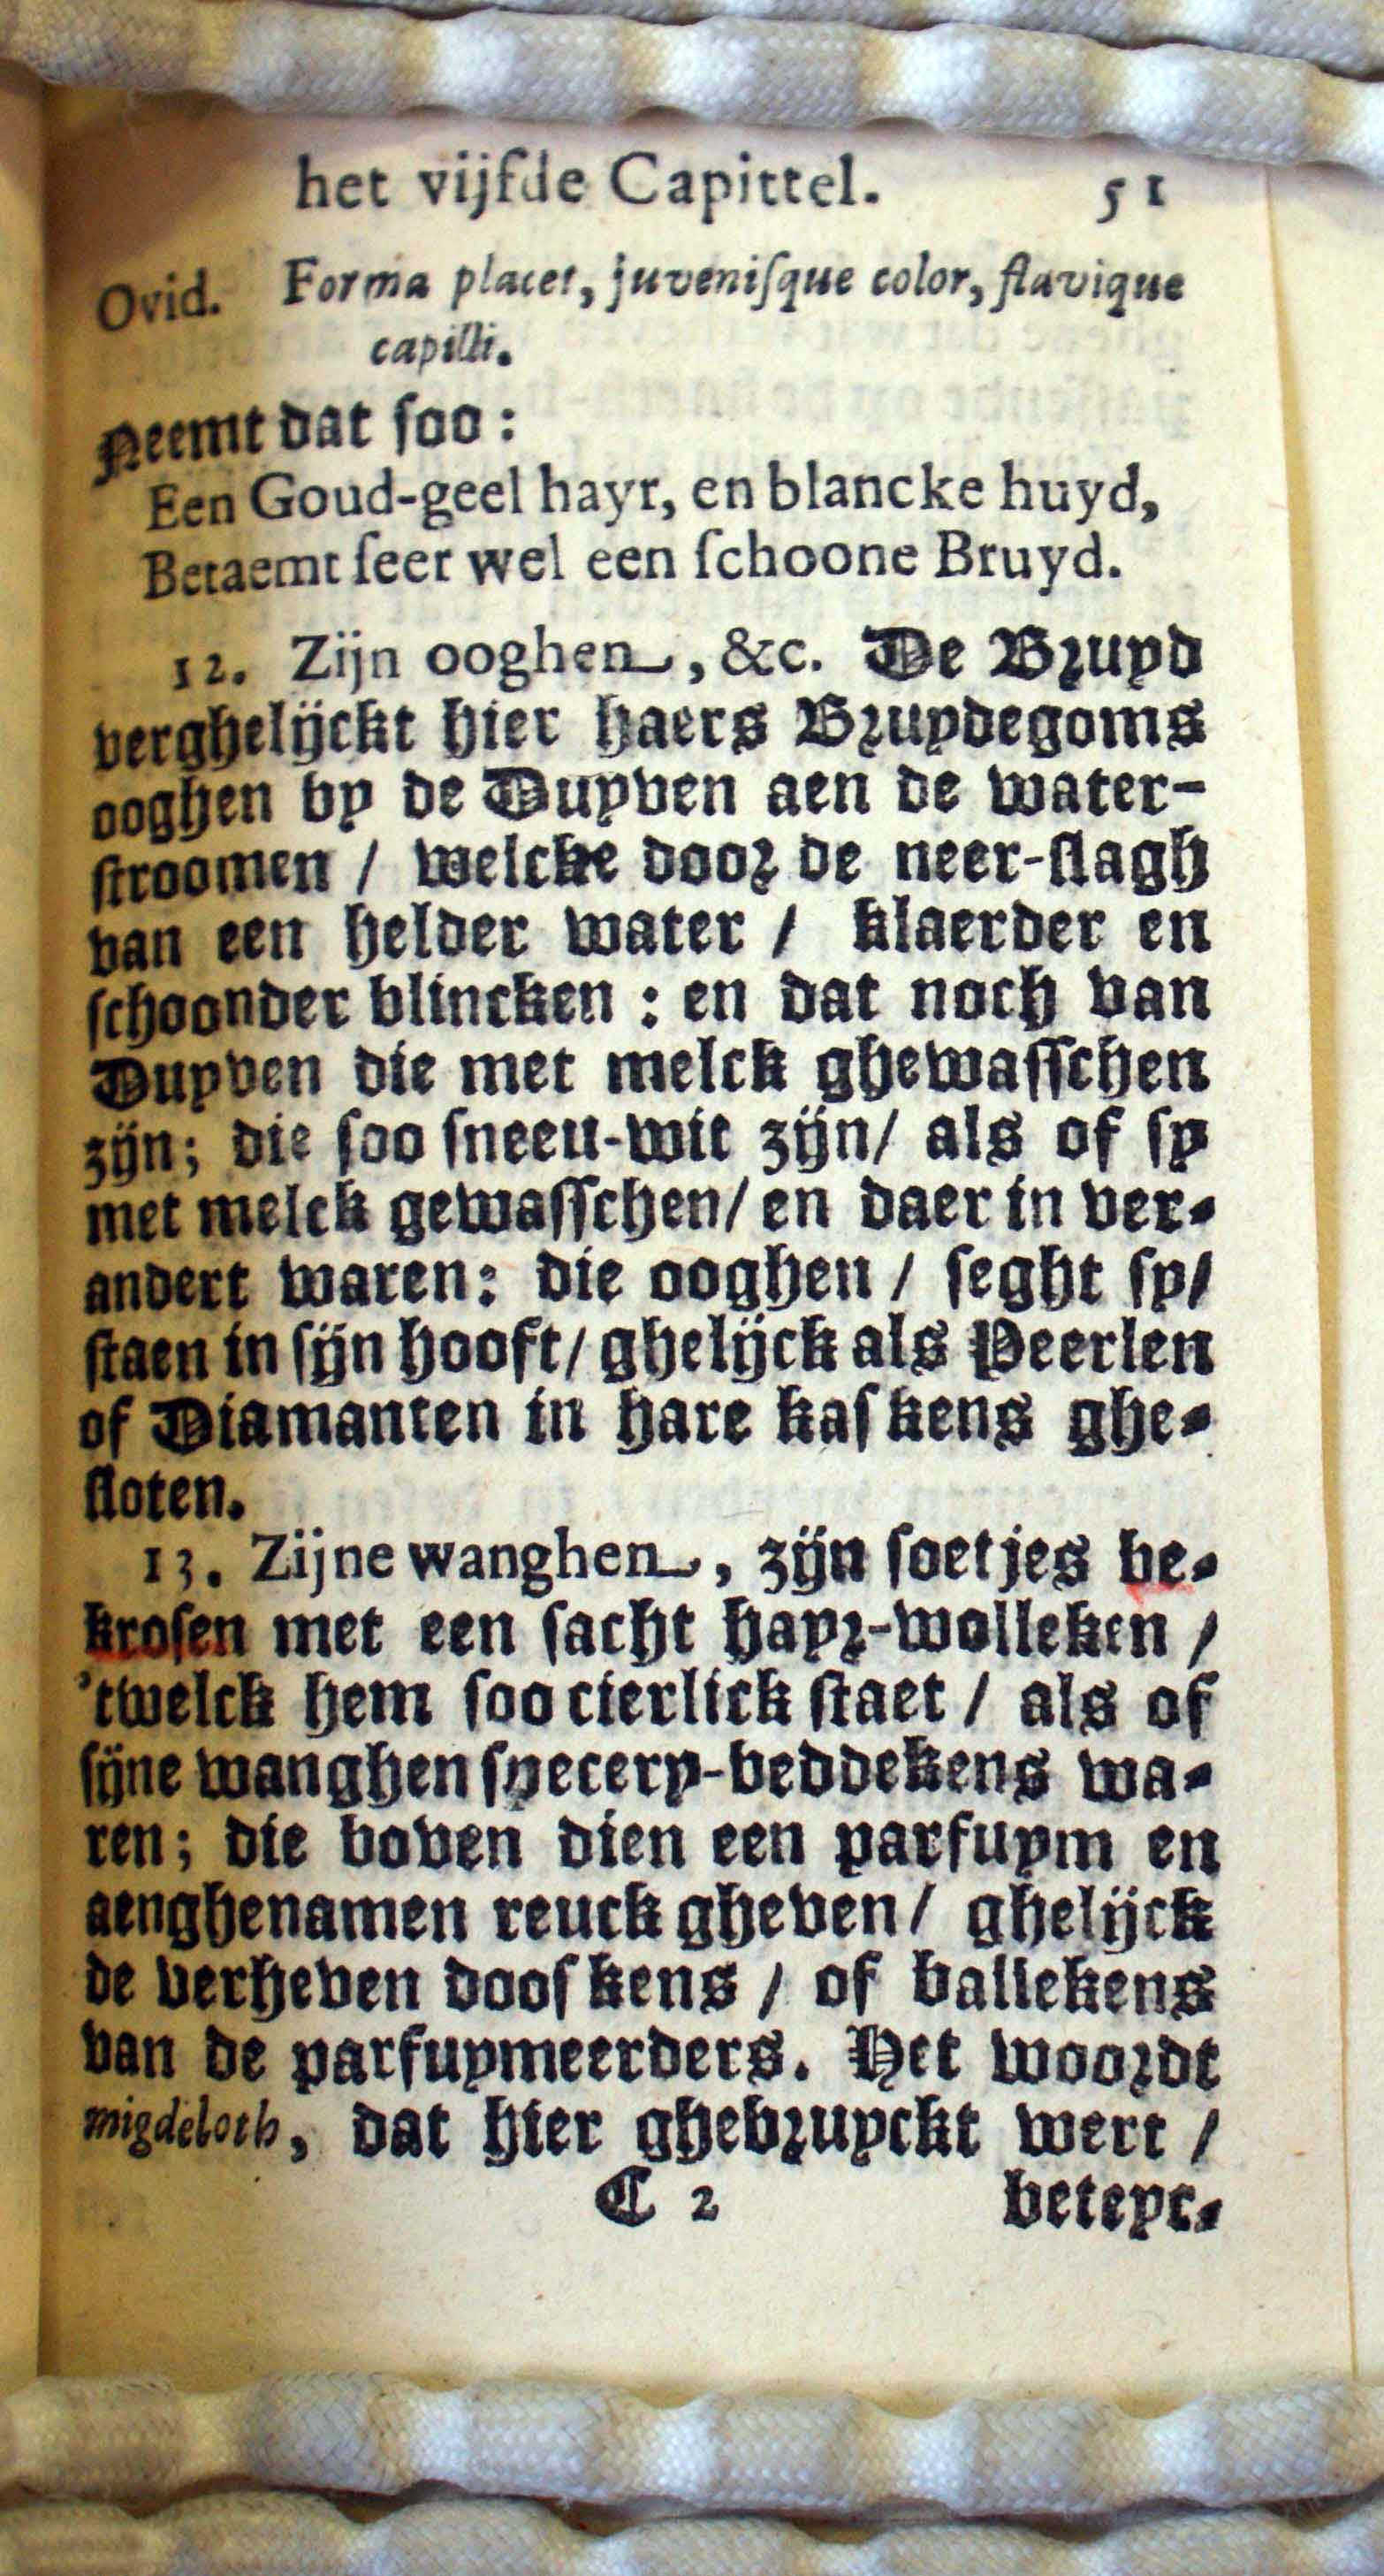 het vijfde Capittel. 51
Ovid. Forma placet, juveniſque color, flavique
capilli.
Neemt dat ſoo:
Een Goud-geel hayr, en blancke huyd,
Betaemt ſeer wel een ſchoone Bruyd.
12. Zijn ooghen, &c. De Bruyd
verghelijckt hier haers Bruydegoms
ooghen by de Duyven aen de water-
ſtroomen / welcke door de neer-ſlagh
van een helder water / klaerder en
ſchoonder blincken : en dat noch van
Duyven die met melck ghewaſſchen
zijn; die ſoo ſneeu-wit zijn/ als of ſy
met melck gewaſſchen/ en daer in ver-
andert waren: die ooghen / ſeght ſy/
ſtaen in ſijn hooft/ ghelijck als Peerlen
of Diamanten in hare kaſkens ghe-
ſloten.
13. Zijne wanghen, zijn ſoetjes be-
kroſen met een ſacht hayr-wolleken /
'twelck hem ſoo cierlick ſtaet / als of
ſijne wanghen ſpecery-beddekens wa-
ren; die boven dien een parfuym en
aenghenamen reuck gheven/ ghelijck
de verheven dooſkens / of ballekens
van de parfuymeerders. Het woordt
migdeloth, dat hier ghebruyckt wert /
C 2 beteyc-